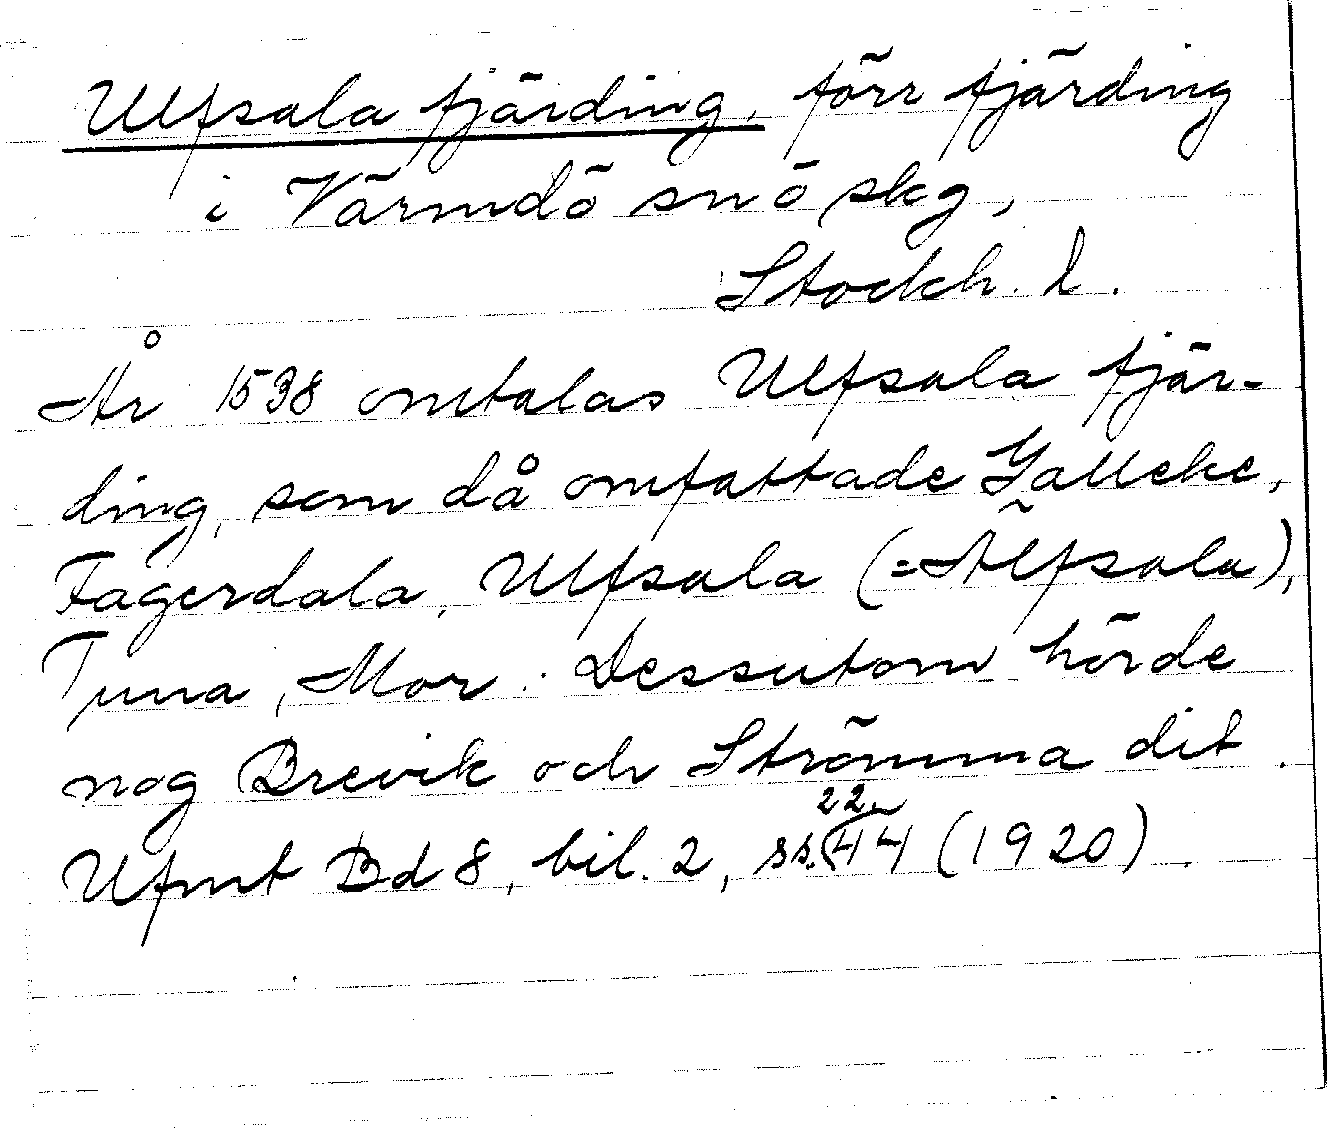 Ulfsala fjärding, förr fjärding
i Värmdö snö skg,
Stockh. l.
År 1538 omtalas Ulfsala fjär-
ding, som då omfattade Galleke,
Fagerdala, Ulfsala (=Älfsala),
Tuna, Mor. Dessutom hörde
nog Brevik och Strömma dit.
22
Ufmt Bd 8, bil. 2, ss. 44 (1920).